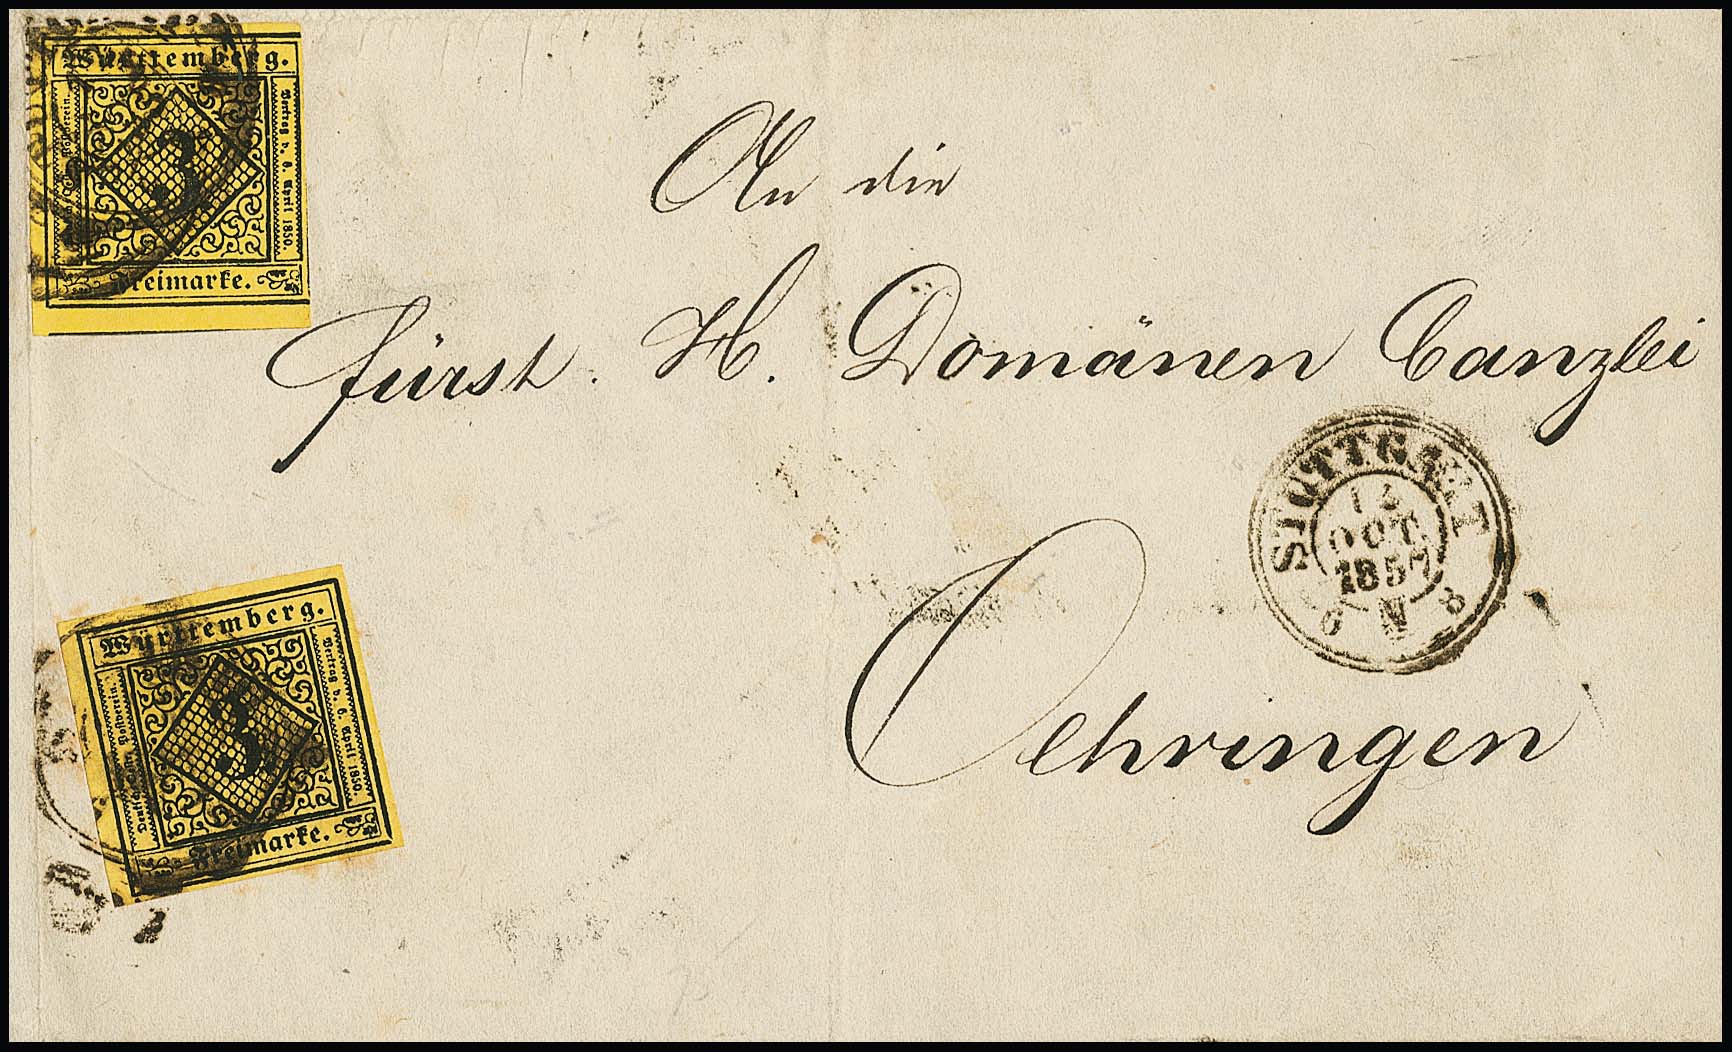 Württemberg.
3
Vertrag v. 6. April 1850.
Freimarke.
An die
fürstl. H. Domänen Canzlei
STUTTGART
OCT.
1857
6 N 8
Oehringen
Württemberg.
Deutsch-Oestr. Postverein.
3
Vertrag v. 6. April 1850.
Freimarke.